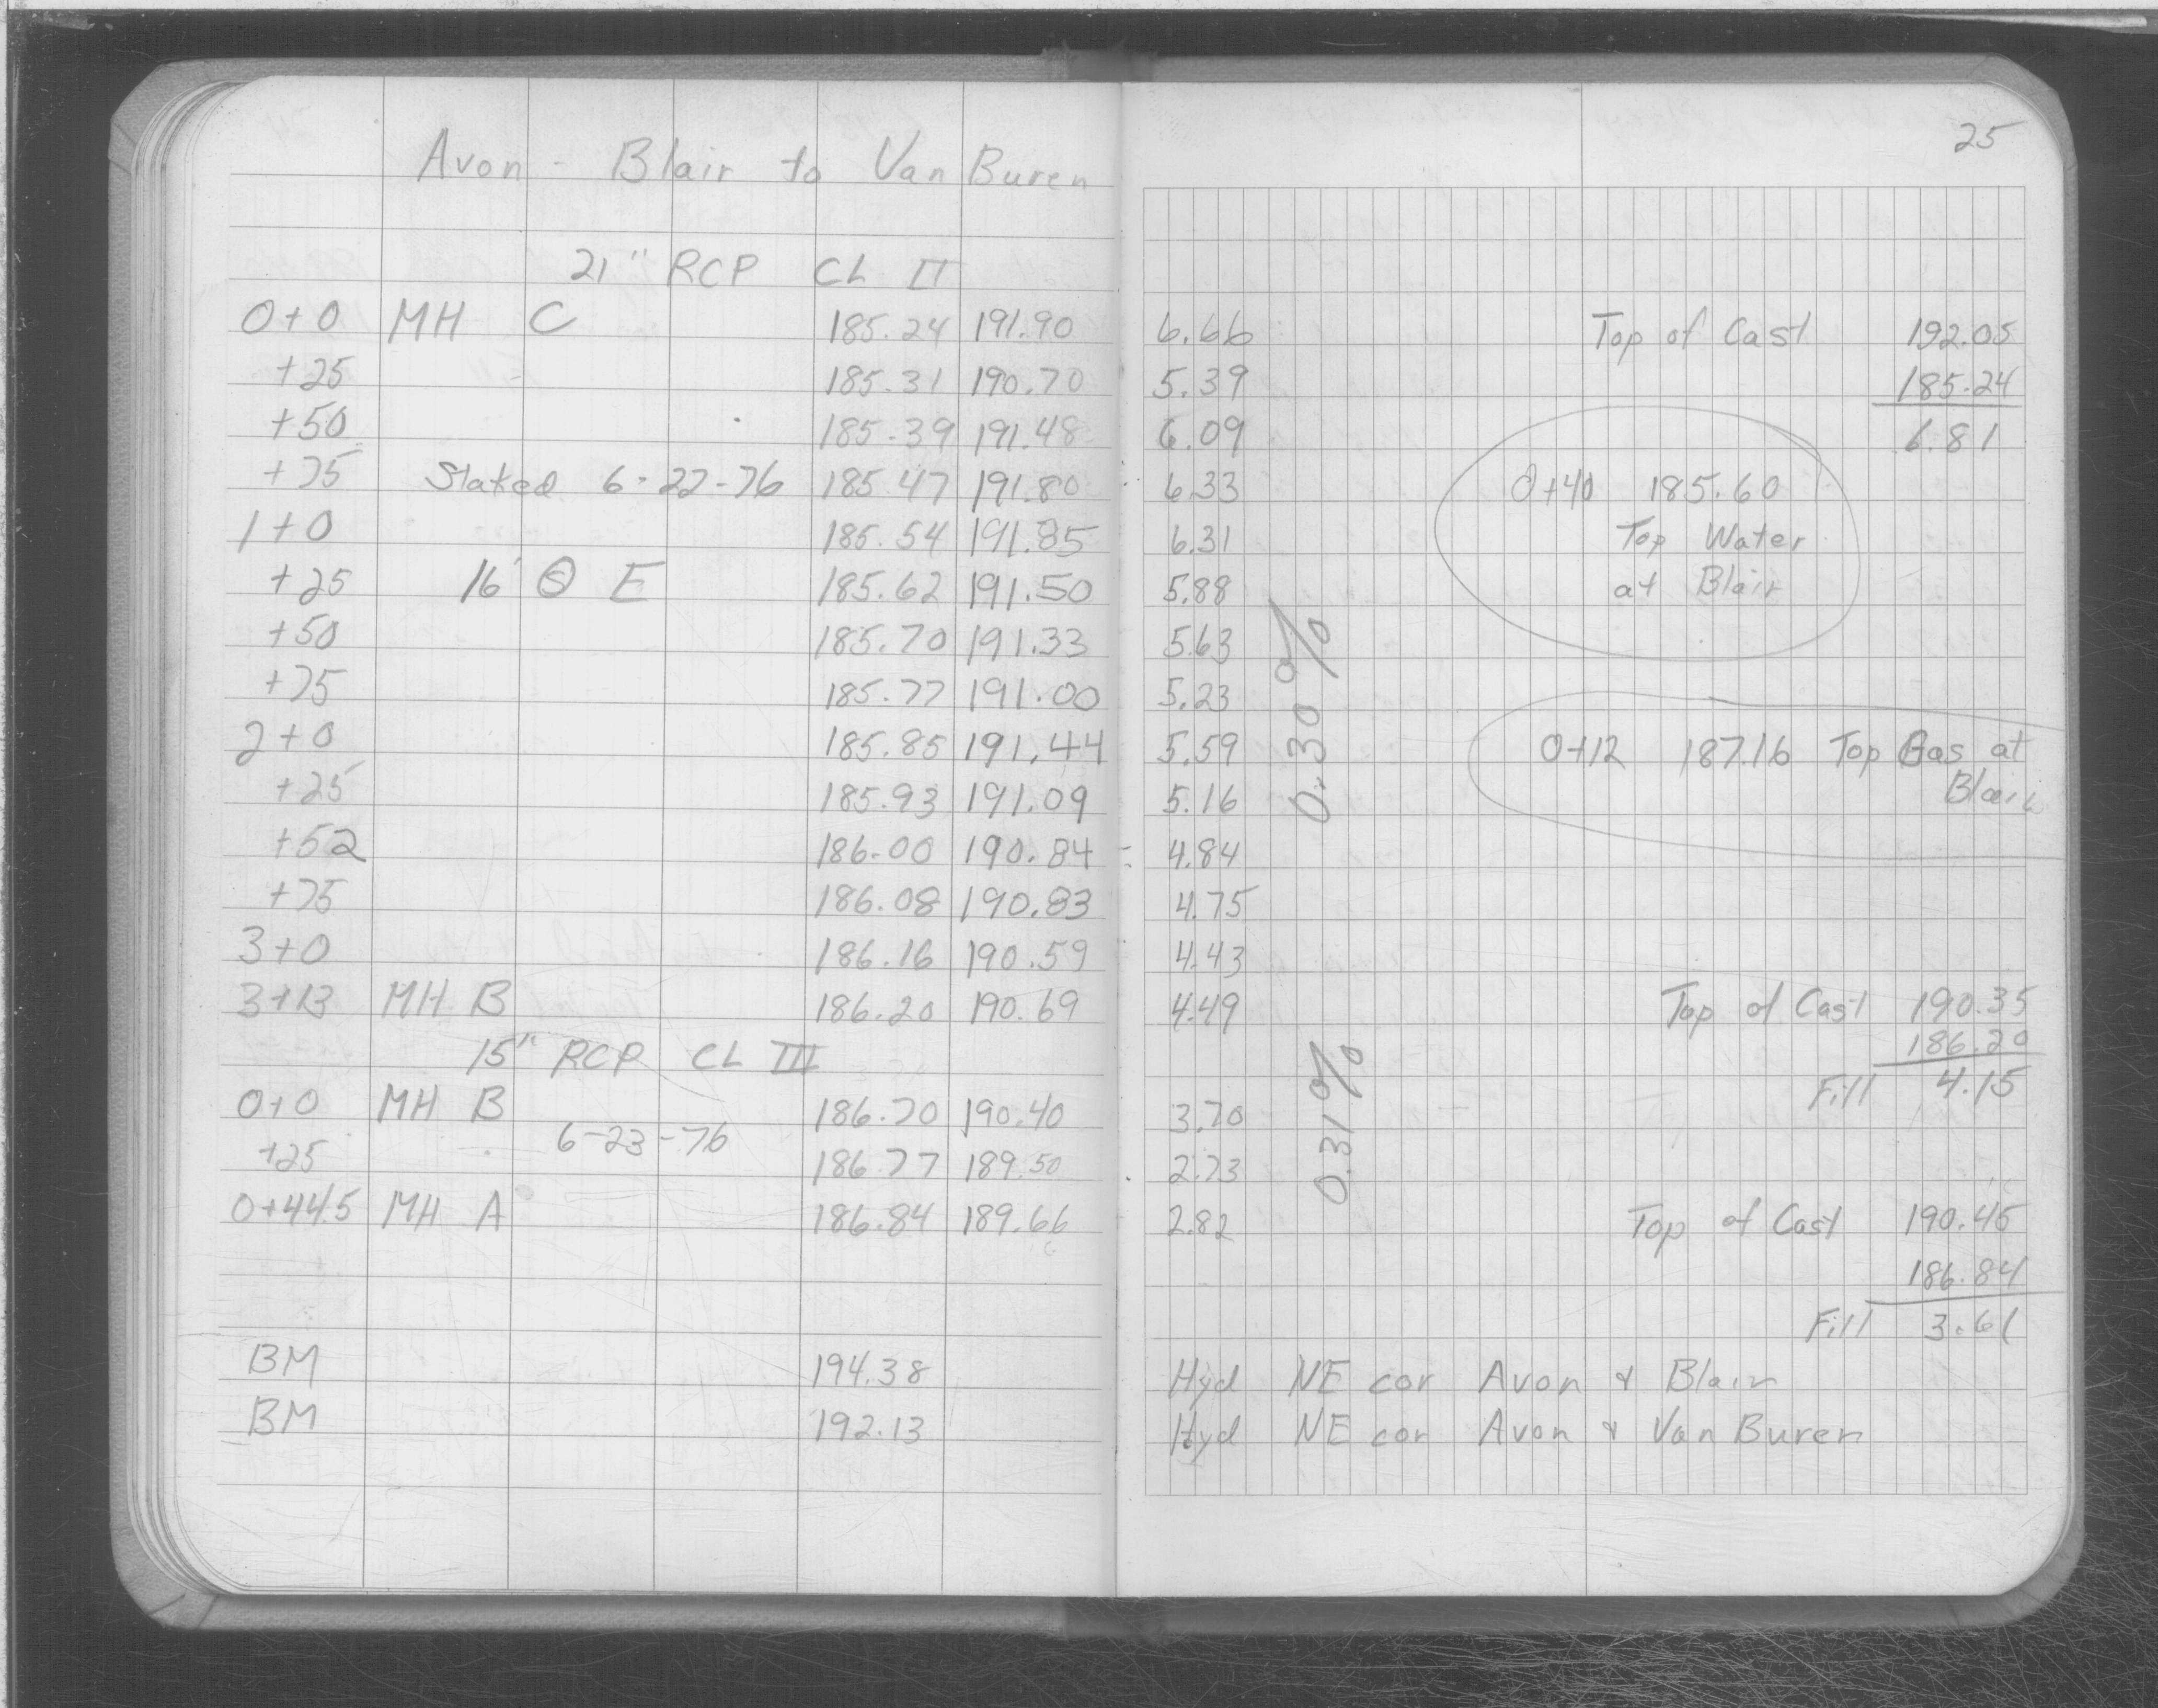 25
Avon - Blair to Van Buren
21" RCP CL II
0+0 MH C 185.24 191.90 6.66 Top of Cast 192.05
+25 185.31 190.70 5.39 185.24
+50 185.39 191.48 6.09 6.81
+75 Staked 6-22-76 185.47 191.80 6.33 0+40 185.60
1+0 185.54 191.85 6.31 Top Water
+25 16' Ⓢ E 185.62 191.50 5.88 at Blair
+50 185.70 191.33 5.63
+75 185.77 191.00 5.23
2+0 185.85 191.44 5.59 0+12 187.16 Top Gas at
+25 185.93 191.09 5.16 Blair
+52 186.00 190.84 4.84
+75 186.08 190.83 4.75
0.30%
3+0 186.16 190.59 4.43
3+13 MH B 186.20 190.69 4.49 Top of Cast 190.35
15" RCP CL III 186.20
0+0 MH B 186.70 190.40 3.70 Fill 4.15
6-23-76
+25 186.77 189.50 2.73
0.31%
0+44.5 MH A 186.84 189.66 2.82 Top of Cast 190.45
186.84
Fill 3.61
BM 194.38 Hyd NE cor Avon & Blair
BM 192.13 Hyd NE cor Avon & Van Buren